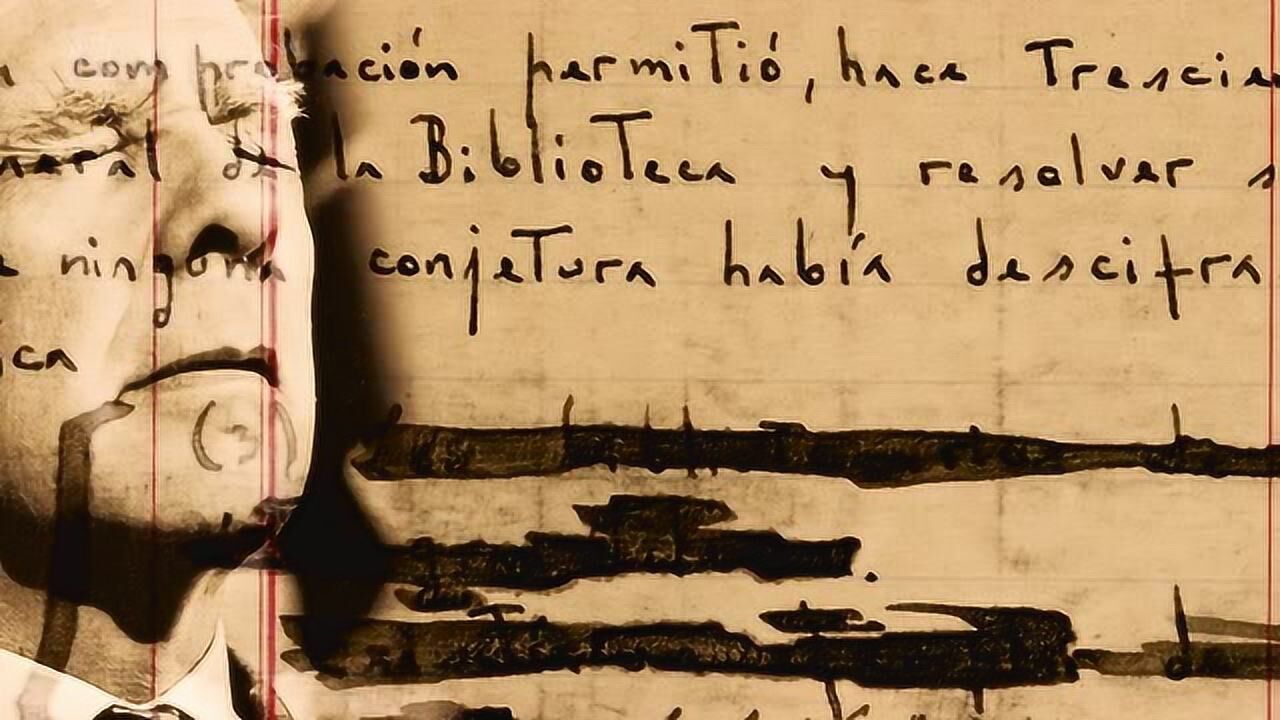 comprobación permitió, hace Trescie
neral de la Biblioteca y resolver s
e ninguna conjetura había descifra
ica
(3)